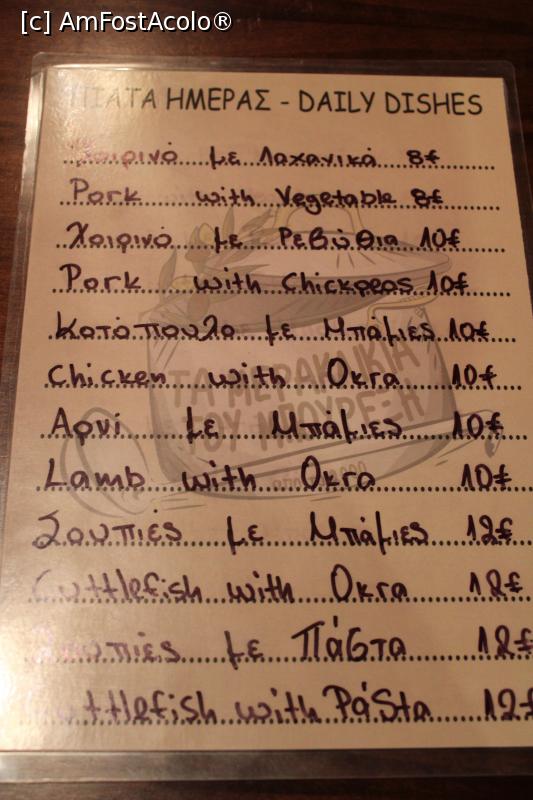 [c] AmFostAcolo®
ΠΙΑΤΑ ΗΜΕΡΑΣ - DAILY DISHES
Χοιρινό με Λαχανικά 8€
Pork with Vegetable 8€
Χοιρινό με Ρεβύθια 10€
Pork with Chickpeas 10€
Κοτόπουλο με Μπάμιες 10€
Chicken with Okra 10€
Αρνί με Μπάμιες 10€
Lamb with Okra 10€
Σουπιές με Μπάμιες 12€
Cuttlefish with Okra 12€
Σουπιές με Πάστα 12€
Cuttlefish with Pásta 12€
ΤΑ ΜΕΡΑΚΛΙΚΙΑ
ΤΟΥ ΜΠΟΥΡΕΞΗ
από